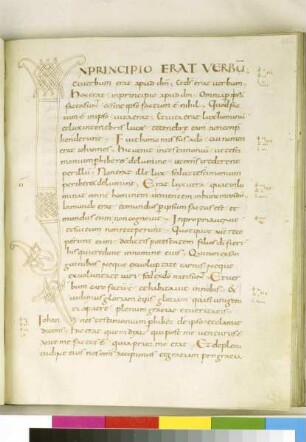 IN PRINCIPIO ERAT VERBŪ
Et uerbum erat apud dm̄, & dſ̄ erat uerbum.
Hoc erat in principio apud dm̄. Omnia p ipsū
facta sunt & sine ipso factum est nihil. Quod factū
est in ipso uita erat. & uita erat lux hominū
et lux in tenebris lucet. & tenebrę eam non com
prehenderunt. Fuit homo missus a dō. cui nomen
erat iohannes. Hic uenit in testimonium. ut testi
monium phiberet de lumine. ut omnes crederent
per illū. Non erat ille lux. sed ut testimonium
perhiberet de lumine. Erat lux uera quę inlu
minat omnem hominem uenientem in hunc mundū
In mundo erat. & mundus p ipsum factus est. et
mundus eum non cognouit. In propria uenit.
et sui eum non receperunt. Quotquot aut̄ rece
perunt eum. dedit eis potestatem filios dī fieri
his qui credunt in nomine eius. Qui non ex san
guinibus. neque ex uoluntate carnis. neque
ex uoluntate uiri. sed ex dō nati sunt. Et uer
bum caro factū ē. & habitauit in nobis. &
uidimus gloriam eius. gloriam quasi unigeniti
a patre. plenum gratiae et ueritatis.
Iohannes testimonium phibet de ipso. et clamat
dicens. Hic erat quem dixi. qui post me uenturus ē
ante me factus ē. quia prior me erat. Et de pleni
tudine eius nos omnes accepimus. et gratiam pro gratia